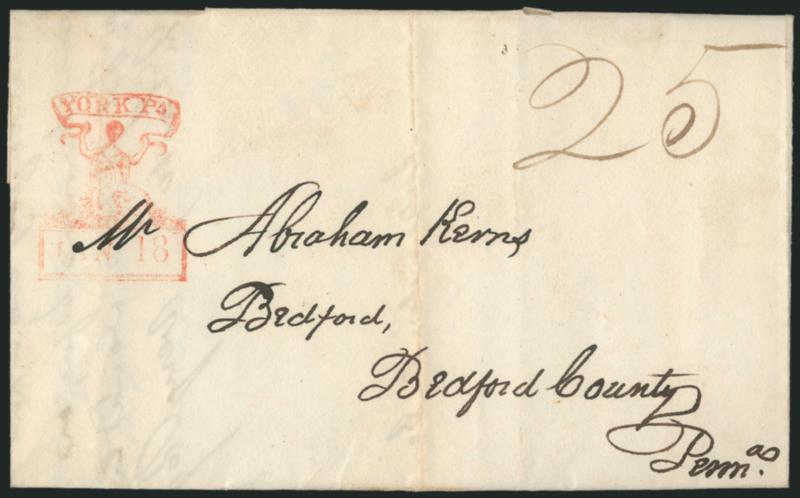 25
YORK Pa
JAN 18
Mr Abraham Kerns
Bedford,
Bedford County
Penna.